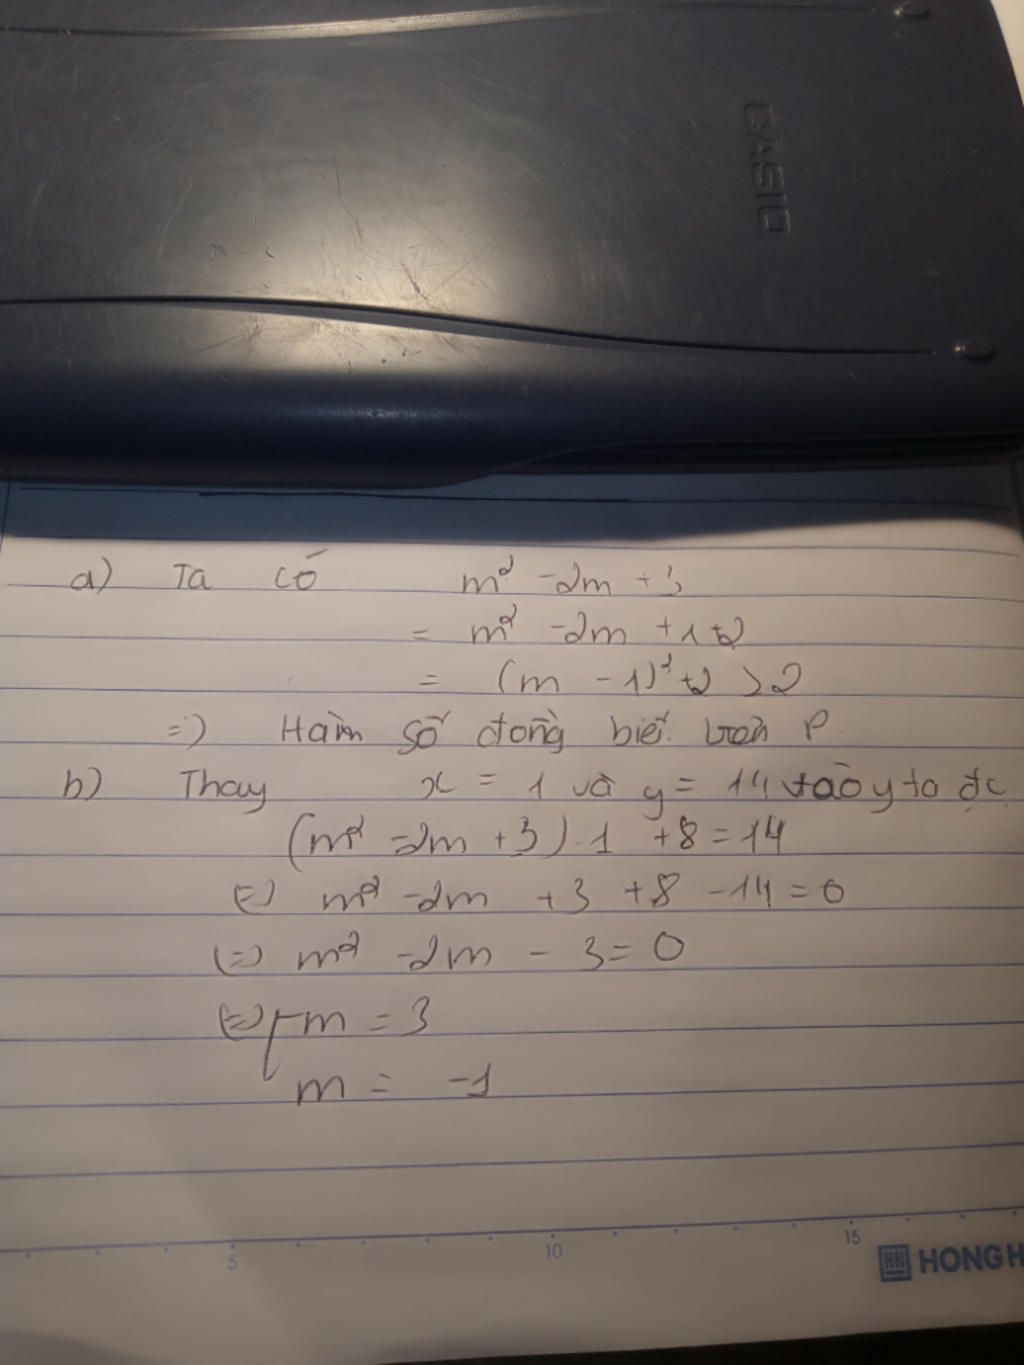 CASIO
a) Ta có m² - 2m + 3
= m² - 2m + 1 + 2
= (m - 1)² + 2 > 2
=> Hàm số đồng biế trên R
b) Thay x = 1 và y = 14 vào y ta đc
(m² - 2m + 3) . 1 + 8 = 14
(=) m² - 2m + 3 + 8 - 14 = 0
(=) m² - 2m - 3 = 0
(=) [ m = 3
m = -1
5 10 15
HH HONG H